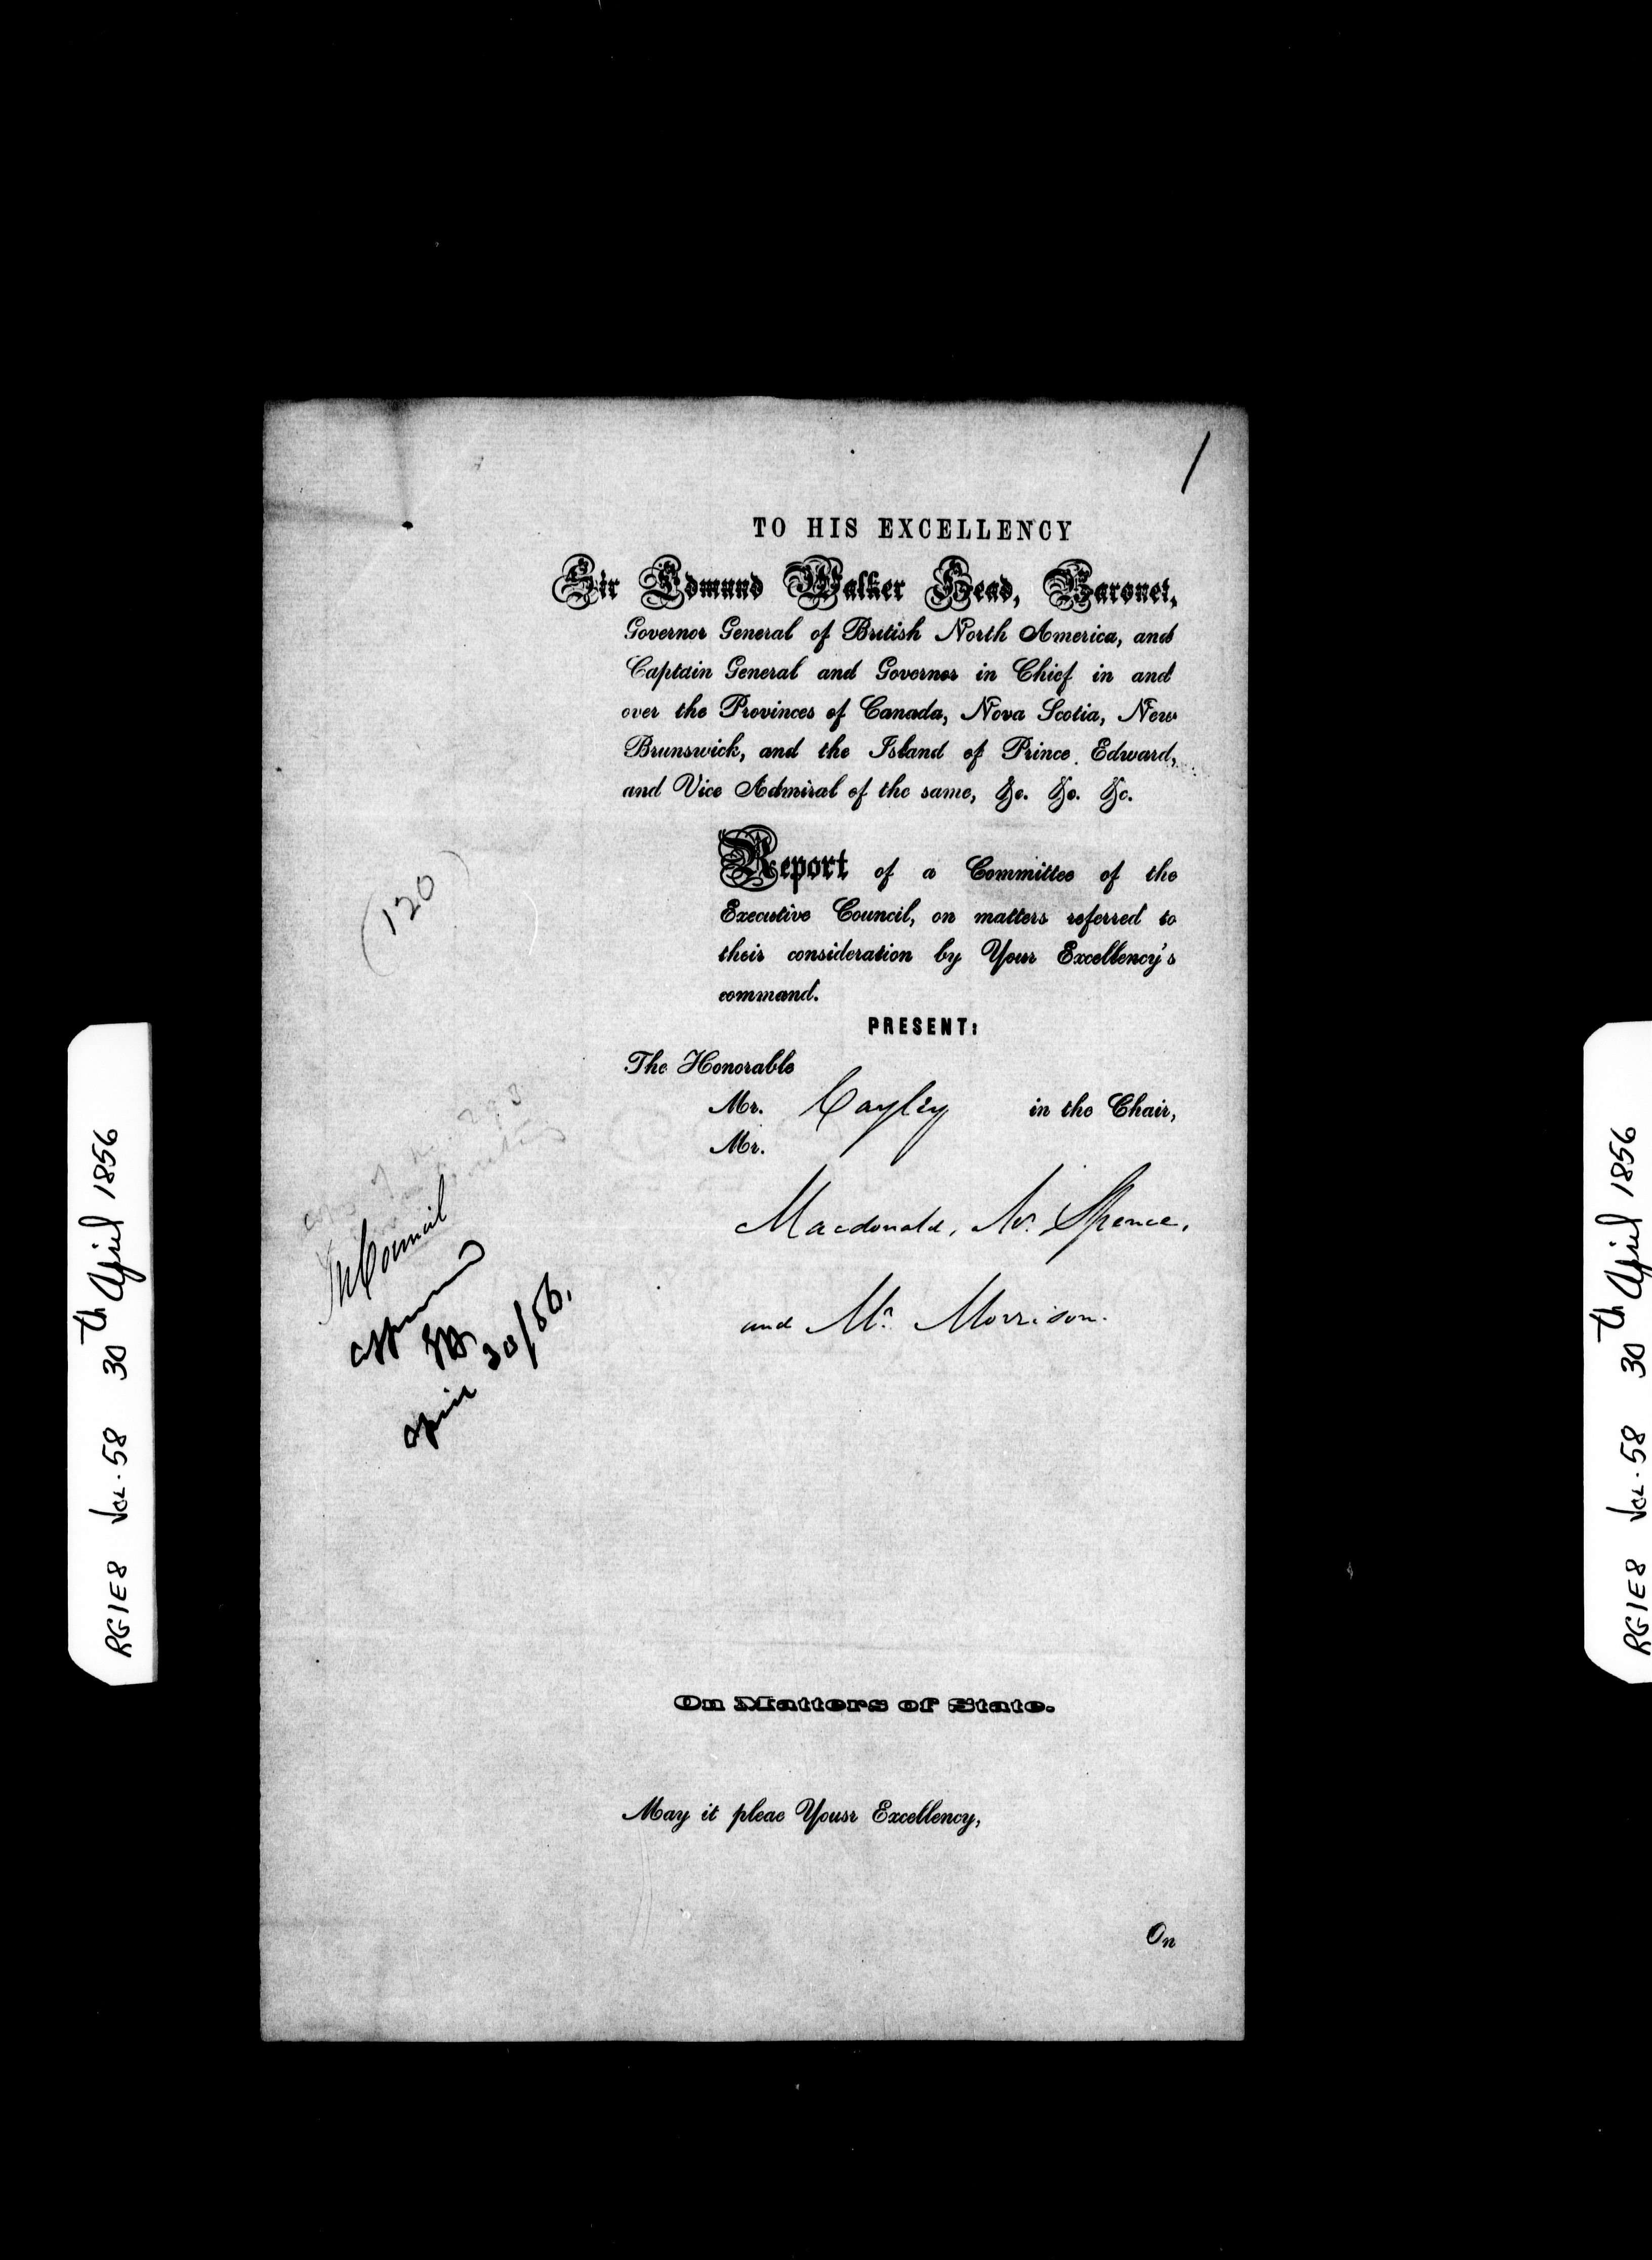 1
TO HIS EXCELLENCY
Sir Edmund Walker Head, Baronet,
Governor General of British North America, and
Captain General and Governor in Chief in and
over the Provinces of Canada, Nova Scotia, New
Brunswick, and the Island of Prince Edward,
and Vice Admiral of the same, &c. &c. &c.
Report of a Committee of the
Executive Council, on matters referred to
their consideration by Your Excellency's
command.
PRESENT:
The Honorable
Mr. Cayley in the Chair,
Mr.
Macdonald, Mr. Spence,
and Mr. Morrison.
(120)
In Council
April 30/56.
On Matters of State.
May it pleae Yousr Excellency,
On
RG1E8 Vol. 58 30th April 1856
RG1E8 Vol. 58 30th April 1856